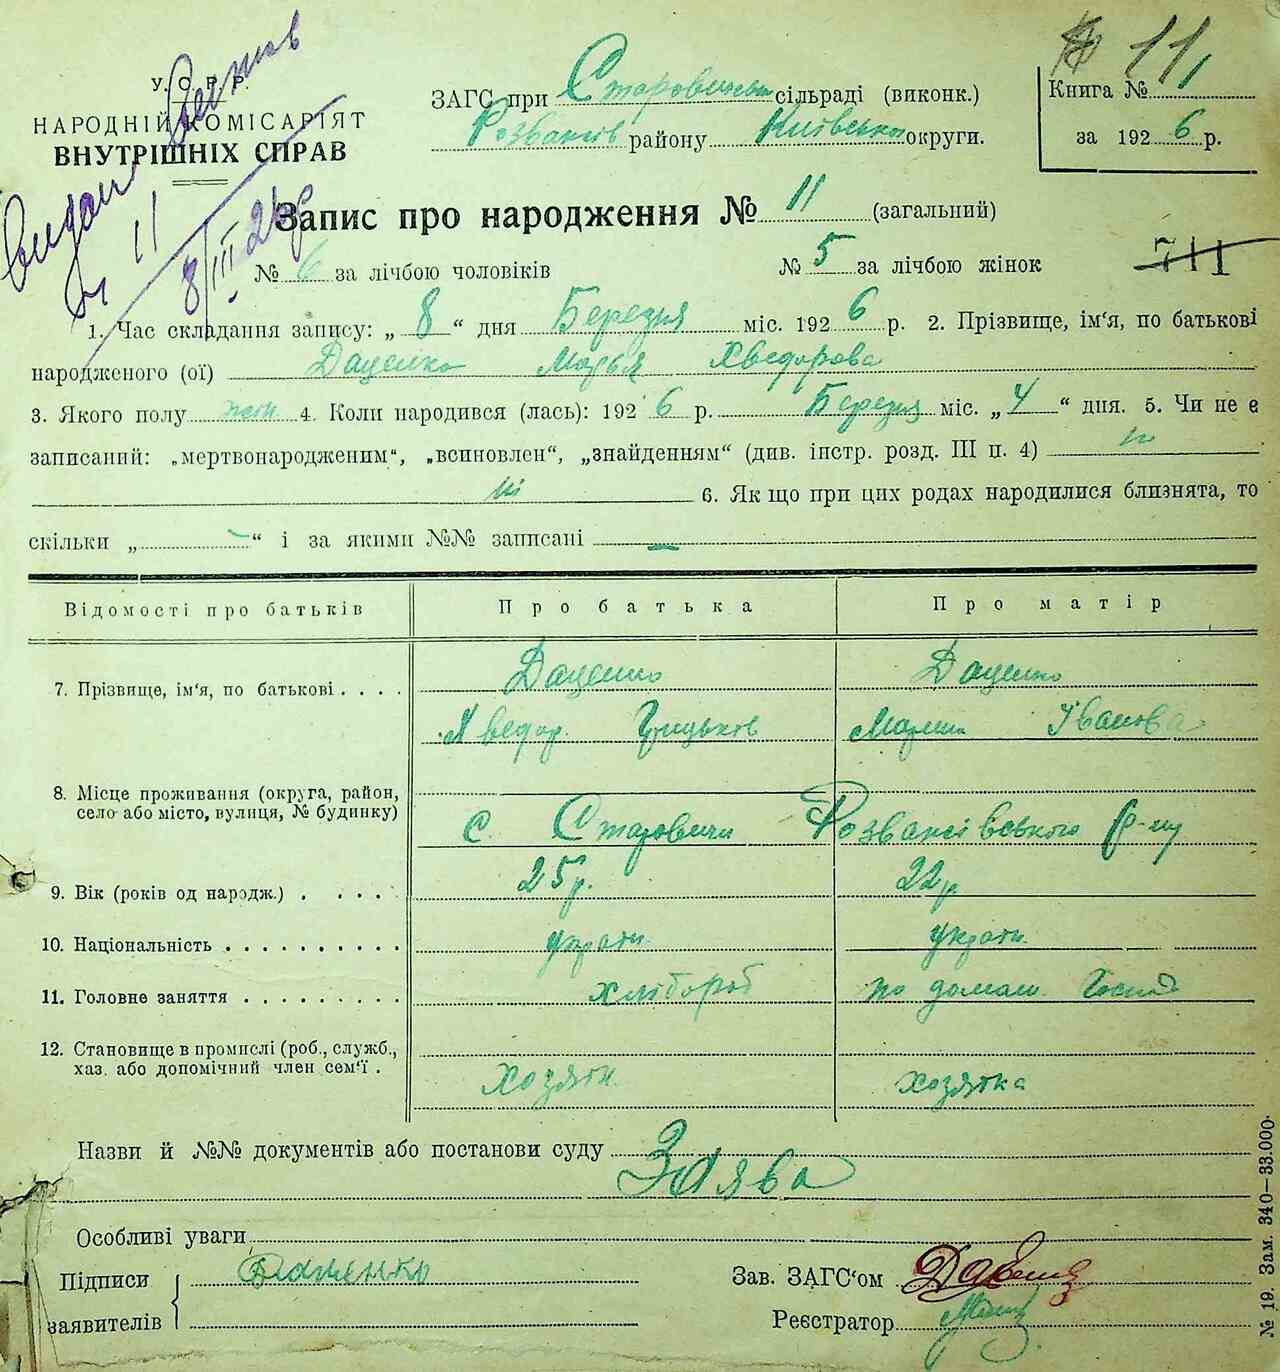 У. С. Р. Р.
НАРОДНІЙ КОМІСАРІЯТ
ВНУТРІШНІХ СПРАВ
11
8/III 26р
ЗАГС при Старовицьк сільраді (виконк.)
Розважів району Київської округи.
11
Книга №
за 1926 р.
Запис про народження № 11 (загальний)
№ 6 за лічбою чоловіків № 5 за лічбою жінок
711
1. Час складання запису: „8“ дня Березня міс. 1926 р. 2. Прізвище, ім'я, по батькові
народженого (ої) Даценко Марья Хведорова
3. Якого полу жен 4. Коли народився (лась): 1926 р. Березня міс. „4“ дня. 5. Чи не є
записаний: „мертвонародженим“, „всиновлен“, „знайденням“ (див. інстр. розд. III п. 4) ні
ні 6. Як що при цих родах народилися близнята, то
скільки „ - “ і за якими №№ записані —
Відомості про батьків Про батька Про матір
7. Прізвище, ім'я, по батькові . . . . Даценко Даценко
Хведор Грицьков Мария Іванова
8. Місце проживання (округа, район,
село або місто, вулиця, № будинку)
с Старовичи Розважівського р-ну
9. Вік (років од народж.) . . . . . 25р. 22р
10. Національність . . . . . . . . . . україн. україн.
11. Головне заняття . . . . . . . . . хлібороб по домаш. Господ
12. Становище в промислі (роб., служб.,
хаз. або допомічний член сем'ї .
Хозяїн. хозяйка
Назви й №№ документів або постанови суду Заява
Особливі уваги
Підписи Даценко Зав. ЗАГС'ом
заявителів Реєстратор
№ 19. Зам. 340—33.000.